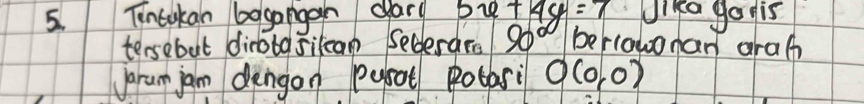 5. Tentukan bagangan dari 5x + 4y = 7 Jika garis
tersebut dirotasikan sebesar 90° berlawanan arah
jarum jam dengan pusat rotasi O(0,0)